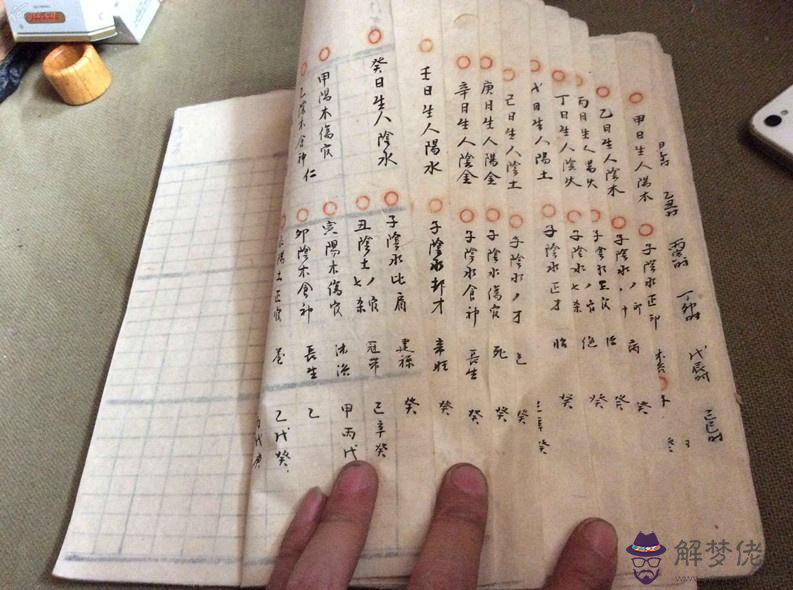 乙丑时
丙寅时
丁卯时
戊辰时
己巳时
甲日生人陽木
子陰水正印
乙日生人陰木
病
癸
丙日生人陽火
癸
丁日生人陰火
子陰水七杀
绝
癸
戊日生人陽土
子陰水正才
胎
癸
己日生人陰土
癸
庚日生人陽金
子陰水傷官
死
癸
辛日生人陰金
子陰水食神
長生
癸
壬日生人陽水
子陰水刧才
癸
癸日生人陰水
子陰水比肩
建禄
癸
甲陽木傷官
丑陰土七杀
冠带
己辛癸
乙陰木食神
寅陽木傷官
沐浴
甲丙戊
卯陰木食神
長生
乙
陽土正官
乙戊癸
解梦佬